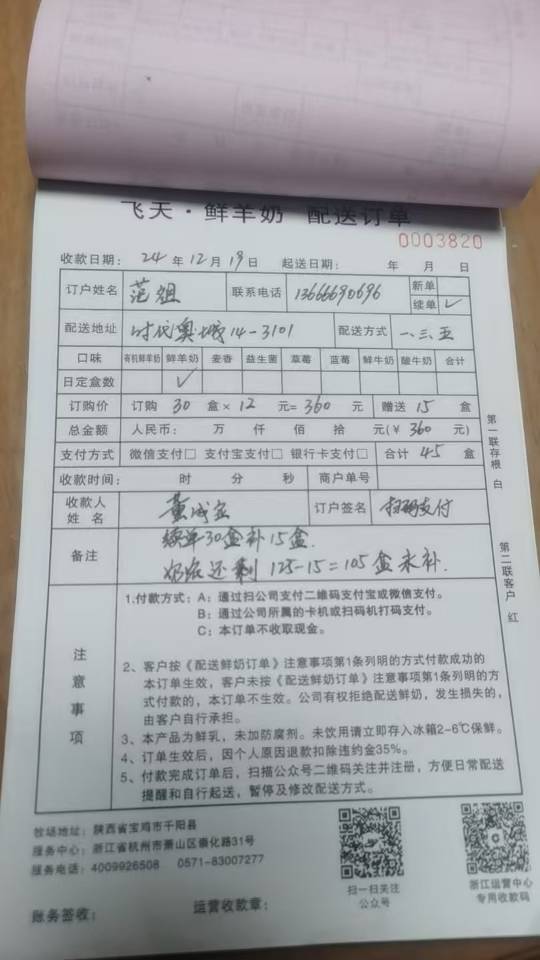 飞天·鲜羊奶 配送订单
0003820
收款日期: 24 年 12 月 19 日 起送日期: 年 月 日
订户姓名 范姐 联系电话 13666690696 新单
续单 ✓
配送地址 时代奥城14-3101 配送方式 一、三、五
口味 有机鲜羊奶 鲜羊奶 麦香 益生菌 草莓 蓝莓 鲜牛奶 酸牛奶 合计
日定盒数 ✓
订购价 订购 30 盒× 12 元= 360 元 赠送 15 盒
总金额 人民币: 万 仟 佰 拾 元(¥ 360 元)
支付方式 微信支付□ 支付宝支付□ 银行卡支付□ 合计 45 盒
收款时间: 时 分 秒 商户单号
收款人姓名 订户签名 扫码支付
备注 续单30盒补15盒.
还剩 125-15=105盒未补.
第一联存根 白
第二联客户 红
注意事项
1.付款方式: A: 通过扫公司支付二维码支付宝或微信支付。
B: 通过公司所属的卡机或扫码机打码支付。
C: 本订单不收取现金。
2、客户按《配送鲜奶订单》注意事项第1条列明的方式付款成功的
本订单生效，客户未按《配送鲜奶订单》注意事项第1条列明的方
式付款的，本订单不生效。公司有权拒绝配送鲜奶，发生损失的，
由客户自行承担。
3、本产品为鲜乳，未加防腐剂。未饮用请立即存入冰箱2-6℃保鲜。
4、订单生效后，因个人原因退款扣除违约金35%。
5、付款完成订单后，扫描公众号二维码关注并注册，方便日常配送
提醒和自行起送，暂停及修改配送方式。
牧场地址: 陕西省宝鸡市千阳县
服务中心: 浙江省杭州市萧山区崇化路31号
服务电话: 4009926508 0571-83007277
扫一扫关注
公众号
浙江运营中心
专用收款码
账务签收: 运营收款章: